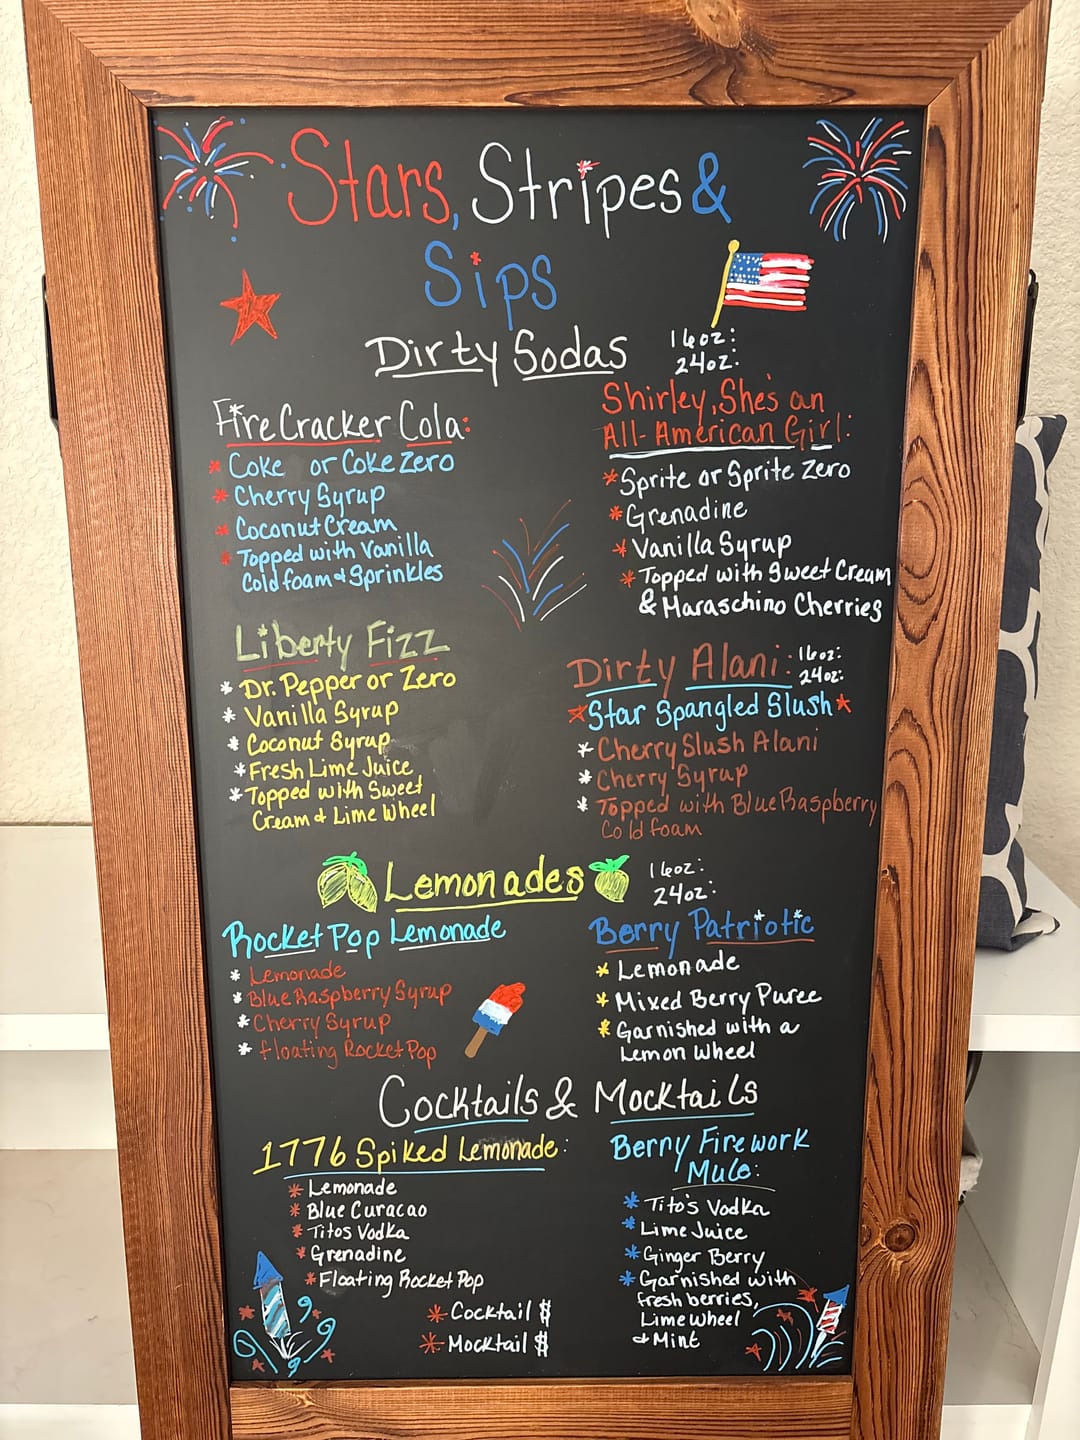 Stars, Stripes &
Sips
Dirty Sodas
16oz:
24oz:
FireCracker Cola:
* Coke or Coke Zero
* Cherry Syrup
* Coconut Cream
* Topped with Vanilla
Cold foam & Sprinkles
Shirley, She's an
All-American Girl:
* Sprite or Sprite Zero
* Grenadine
* Vanilla Syrup
* Topped with Sweet Cream
& Maraschino Cherries
Liberty Fizz
* Dr. Pepper or Zero
* Vanilla Syrup
* Coconut Syrup
* Fresh Lime Juice
* Topped with Sweet
Cream & Lime Wheel
Dirty Alani:
16oz:
24oz:
*Star Spangled Slush*
* Cherry Slush Alani
* Cherry Syrup
* Topped with Blue Raspberry
Cold foam
Lemonades
16oz:
24oz:
Rocket Pop Lemonade
* Lemonade
* Blue Raspberry Syrup
* Cherry Syrup
* floating Rocket Pop
Berry Patriotic
* Lemonade
* Mixed Berry Puree
* Garnished with a
Lemon Wheel
Cocktails & Mocktails
1776 Spiked Lemonade:
* Lemonade
* Blue Curacao
* Titos Vodka
* Grenadine
* Floating Rocket Pop
Berry Firework
Mule:
* Tito's Vodka
* Lime Juice
* Ginger Berry
* Garnished with
fresh berries,
Lime wheel
& Mint
* Cocktail $
* Mocktail $